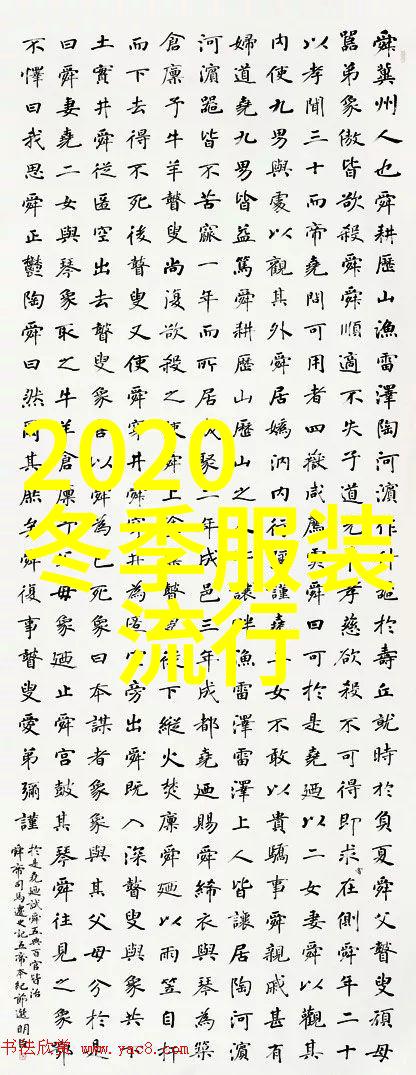 舜冀州人也舜耕歷山漁雷澤陶河濱作什器於壽丘就時於負夏舜父瞽叟頑母
嚚弟象傲皆欲殺舜舜順適不失子道兄弟孝慈欲殺不可得即求嘗在側舜年二十
以孝聞三十而帝堯問可用者四嶽咸薦虞舜曰可於是堯迺以二女妻舜以觀其
內使九男與處以觀其外舜居媯汭內行彌謹堯二女不敢以貴驕事舜親戚甚有
婦道堯九男皆益篤舜耕歷山歷山之人皆讓畔漁雷澤雷澤上人皆讓居陶河濱
河濱器皆不苦窳一年而所居成聚二年成邑三年成都堯迺賜舜絺衣與琴為築
倉廩予牛羊瞽叟尚復欲殺之使舜上塗廩瞽叟從下縱火焚廩舜迺以兩笠自扞
而下去得不死後瞽叟又使舜穿井舜穿井為匿空旁出舜既入深瞽叟與象共下
土實井舜從匿空出去瞽叟象喜以舜為已死象曰本謀者象象與其父母分於是
曰舜妻堯二女與琴象取之牛羊倉廩予父母象迺止舜宮鼓其琴舜往見之象鄂
不懌曰我思舜正鬱陶舜曰然爾其庶矣舜復事瞽叟愛弟彌謹
於是堯迺試舜五典百官皆治
舜帝司馬遷史記五帝本紀節選明
2020
冬季服装
流行
书法欣赏 www.yac8.com